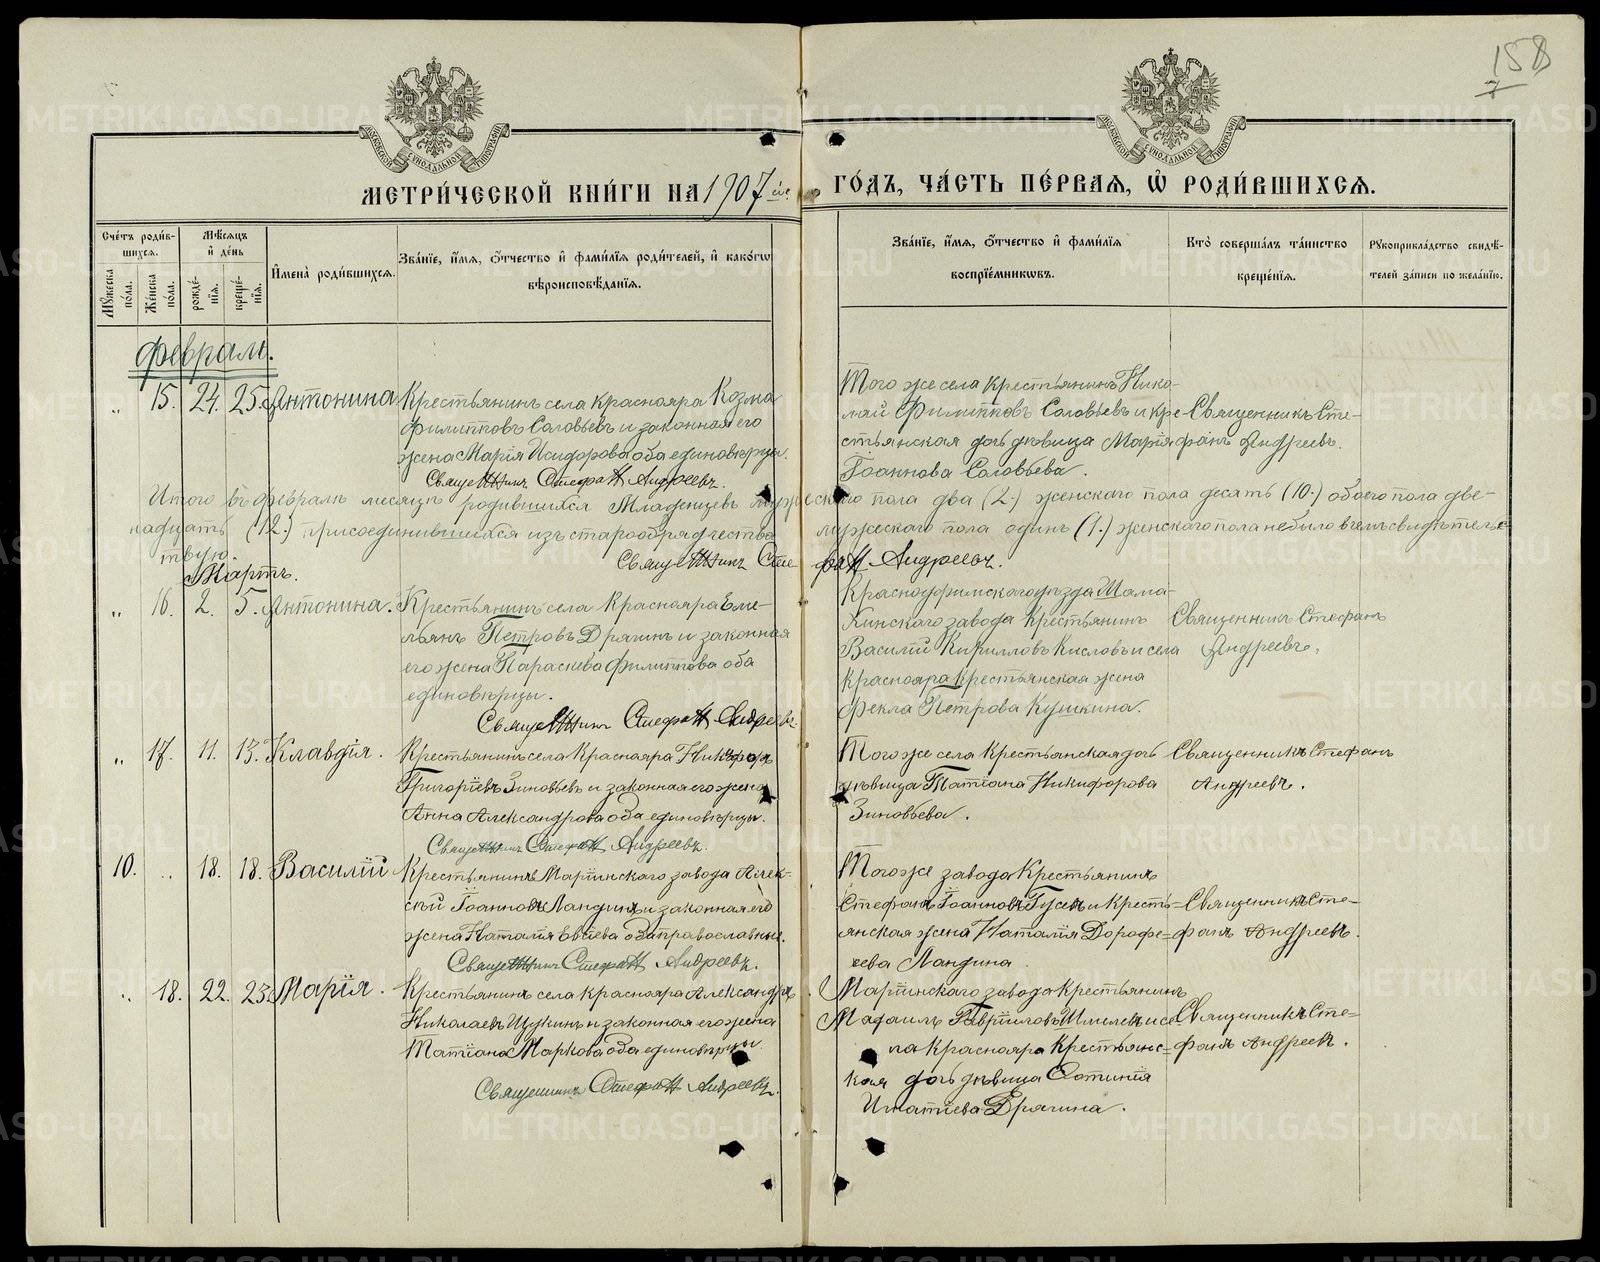 158
7
МОСКОВСКОЙ СѴНОДАЛЬНОЙ ТИПОГРАФІИ
МОСКОВСКОЙ СѴНОДАЛЬНОЙ ТИПОГРАФІИ
МЕТРИ́ЧЕСКОЙ КНИ́ГИ НА 1907 й ГО́ДЪ, ЧА́СТЬ ПЕ́РВАЯ, Ѡ҆ РОДИ́ВШИХСЯ.
Сче́тъ роди́вшихся.
Мꙋ́жеска по́ла.
Же́нска по́ла.
Мѣ́сяцъ и҆ де́нь
рожде́нїя.
креще́нїя.
И҆мена̀ роди́вшихся.
Зва́нїе, и҆́мя, ѻ҆́тчество и҆ фами́лїя роди́телей, и҆ како́гѡ вѣроисповѣ́данїя.
Зва́нїе, и҆́мя, ѻ҆́тчество и҆ фами́лїя воспрїе́мникѡвъ.
Кто̀ соверша́лъ та́инство креще́нїя.
Рꙋкоприкла́дство свидѣ́телей за́писи по жела́нїю.
Февраль.
„ 15. 24. 25. Антонина
Крестьянинъ села Краснояра Козма
Филипповъ Соловьевъ и законная его
жена Марія Исидорова оба единоверцы.
Священникъ Стефанъ Андреевъ.
Того же села Крестьянинъ Нико-
лай Филипповъ Соловьевъ и кре-
стьянская дочь девица Марія
Іоаннова Соловьева.
Священникъ Сте-
фанъ Андреевъ.
Итого въ феврале месяце родившихся Младенцев мужескаго пола два (2.) женскаго пола десять (10.) обоего пола две-
надцать (12.) присоединившихся изъ старообрядчества мужескаго пола одинъ (1.) женскаго пола небыло в чемъ свидетельс-
твую.
Священникъ Стефанъ Андреевъ.
Мартъ.
„ 16. 2. 5. Антонина.
Крестьянинъ села Краснояра Еме-
льянъ Петровъ Дрягинъ и законная
его жена Параскева Филиппова оба
единоверцы.
Священникъ Стефанъ Андреевъ.
Красноуфимскаго уезда Шема-
хинскаго завода Крестьянинъ
Василій Кирилловъ Кисловъ и села
Краснояра Крестьянская жена
Фекла Петрова Кушкина.
Священникъ Стефанъ
Андреевъ.
„ 17. 11. 13. Клавдія.
Крестьянинъ села Краснояра Никифоръ
Григоріевъ Зиновьевъ и законная его жена
Анна Александрова оба единоверцы.
Священникъ Стефанъ Андреевъ.
Того же села Крестьянская дочь
девица Татіана Никифорова
Зиновьева.
Священникъ Стефанъ
Андреевъ.
10. „ 18. 18. Василій
Крестьянинъ Маріинскаго завода Алек-
сѣй Іоанновъ Ландинъ и законная его
жена Наталія Евсіева оба православные.
Священникъ Стефанъ Андреевъ.
Того же завода Крестьянинъ
Стефанъ Іоанновъ Гусевъ и Кресть-
янская жена Наталія Дорофе-
ева Ландина
Священникъ Сте-
фанъ Андреевъ.
„ 18. 22. 23. Марія.
Крестьянинъ села Краснояра Александръ
Николаевъ Щукинъ и законная его жена
Татіана Маркова оба единоверцы.
Священникъ Стефанъ Андреевъ.
Маріинскаго завода Крестьянинъ
Гавріиловъ Шмелевъ и се-
ла Краснояра Крестьянс-
кая дочь девица Фотинія
Игнатіева Дрягина.
Священникъ Сте-
фанъ Андреевъ.
METRIKI.GASO-URAL.RU